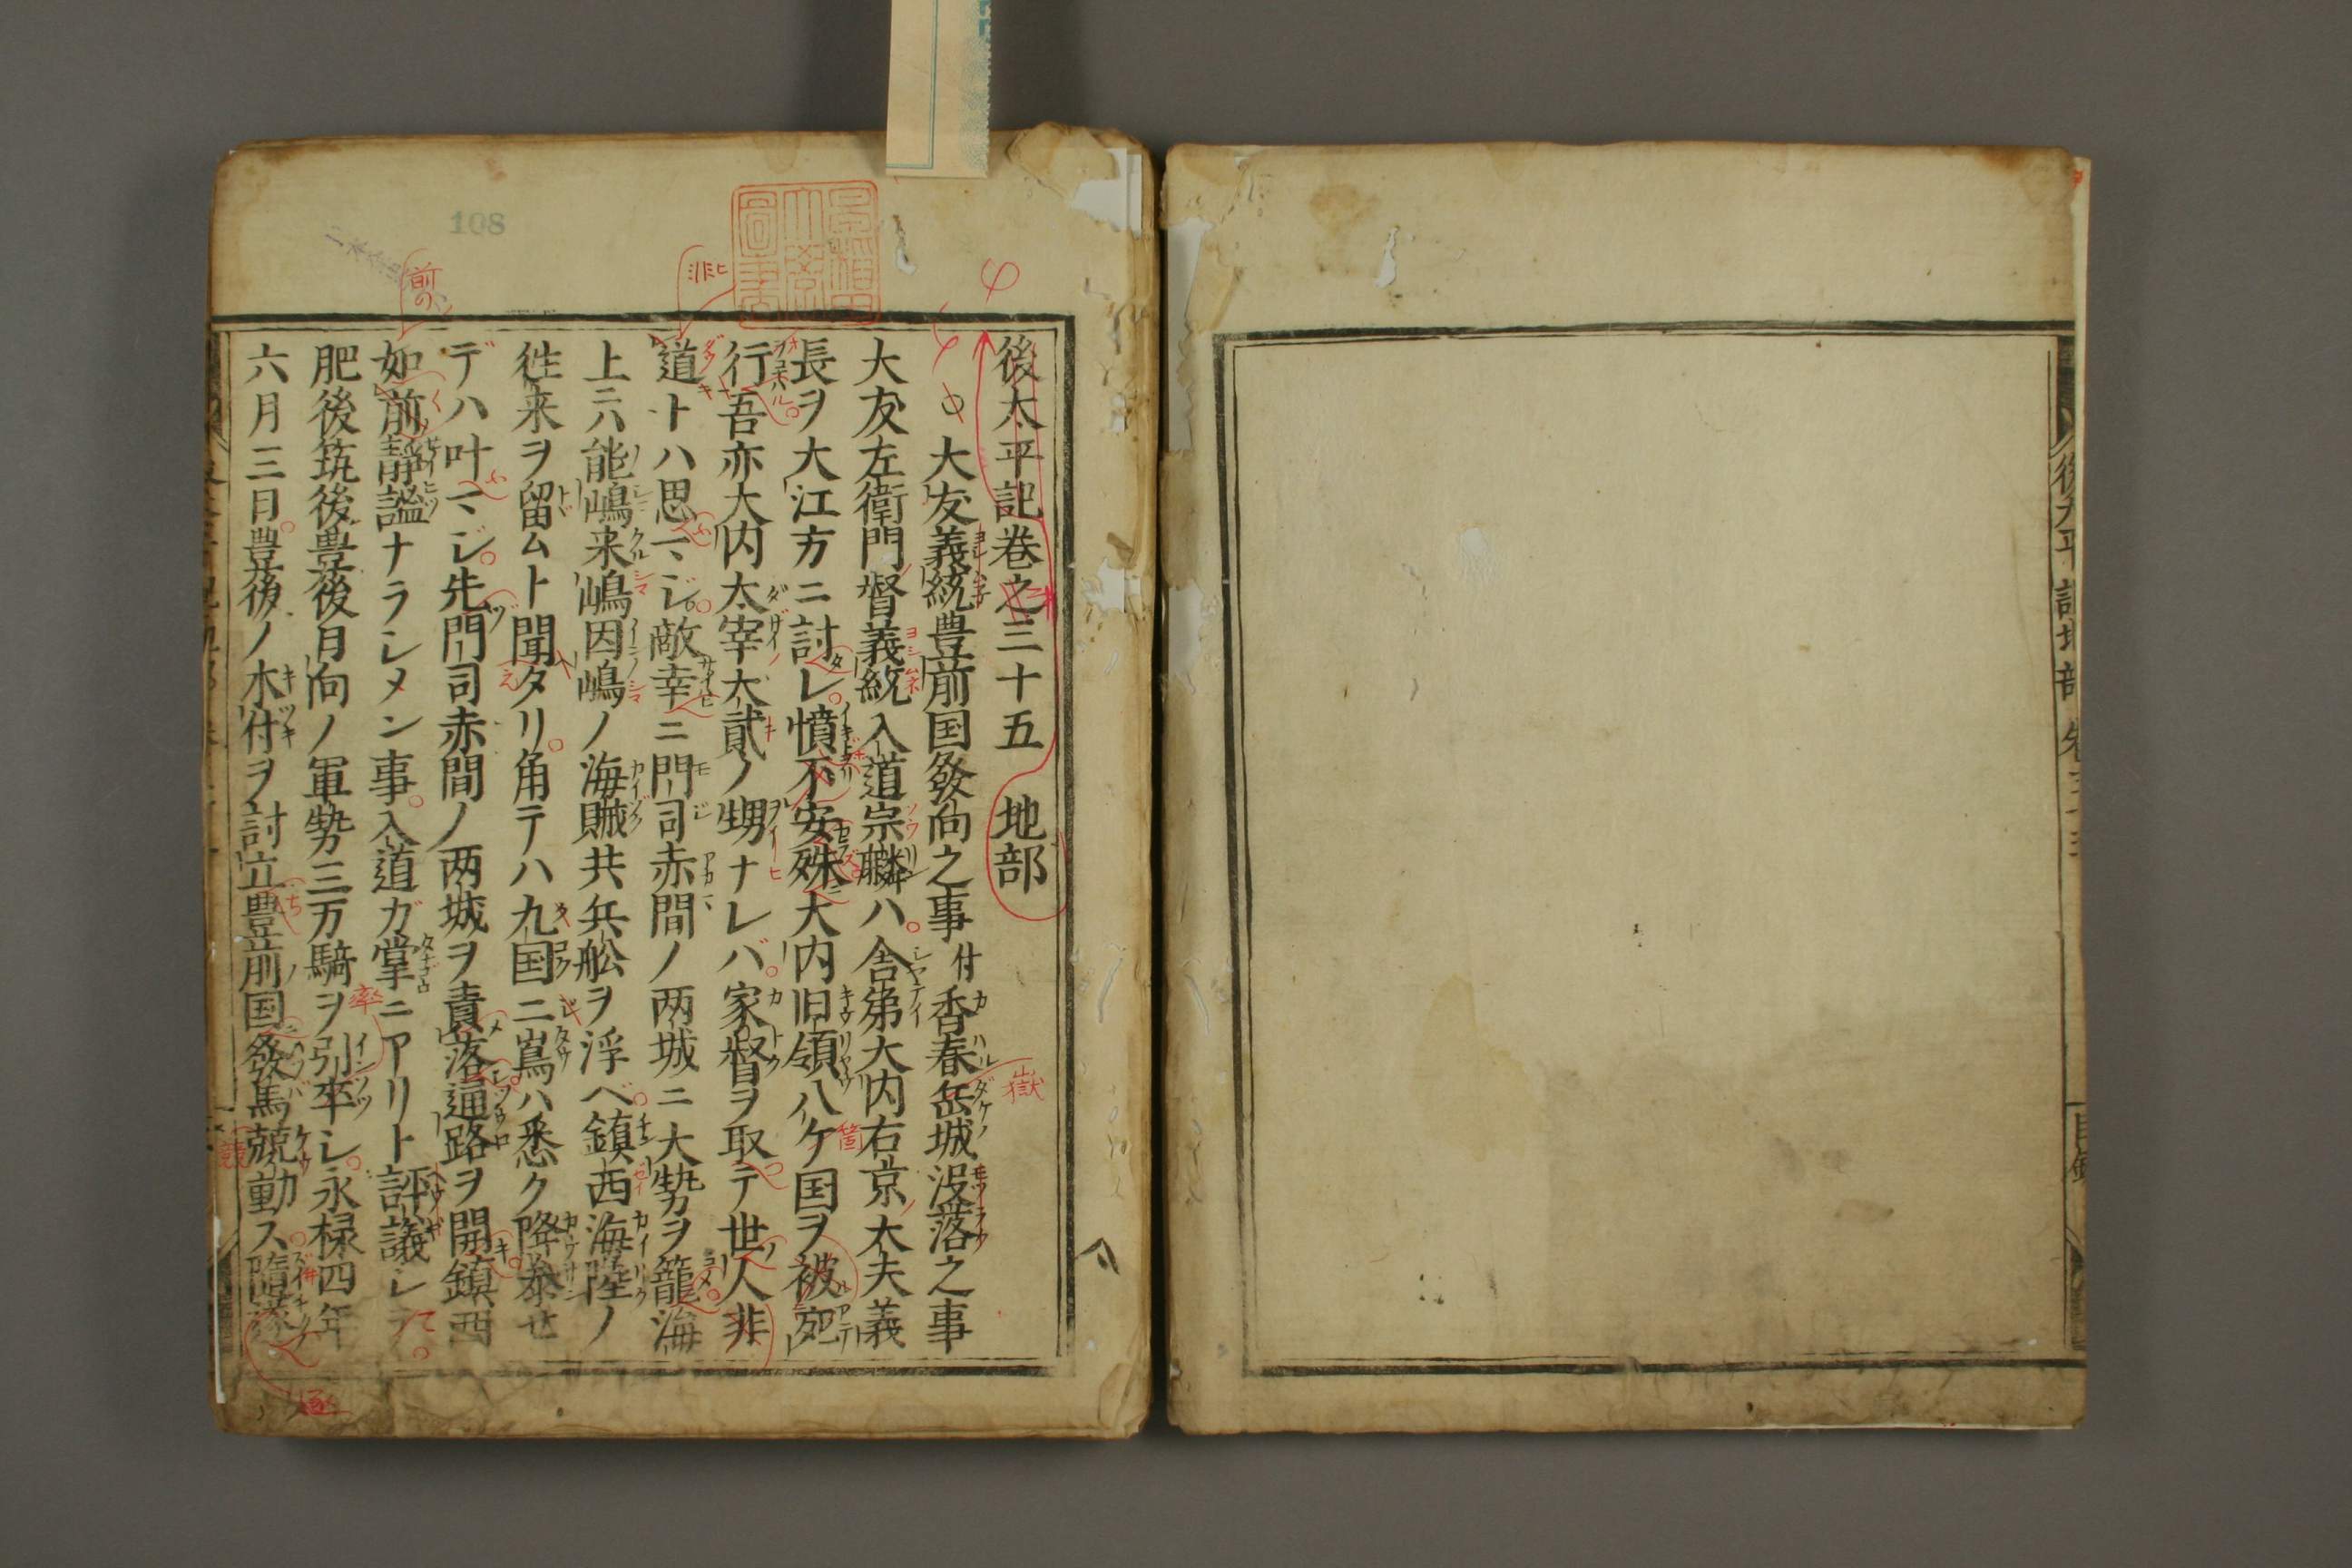 後太平記巻之三十五　地部
大友義統豊前国發向之事付香春岳城没落之事
大友左衛門督義統入道宗麟ハ舎弟大内右京太夫義
長ヲ大江方ニ討レ憤不安殊大内旧領八ケ国ヲ被宛
行吾亦大内太宰大貳ノ甥ナレバ家督ヲ取テ世人非
道トハ思マジ敵幸ニ門司赤間ノ两城ニ大勢ヲ籠海
上ニハ能嶋来嶋因嶋ノ海賊共兵舩ヲ浮ベ鎮西海陸ノ
徃来ヲ留ムト聞タリ角テハ九国ニ嶌ハ悉ク降参セ
デハ叶マジ先門司赤間ノ两城ヲ責落通路ヲ開鎮西
如前静謐ナラシメン事入道ガ掌ニアリト評議シテ
肥後筑後豊後日向ノ軍勢三万騎ヲ引率シ永禄四年
六月三日豊後ノ木付ヲ討立豊前国發馬競動ス隋遂
108
前の
非
嶽
箇
率
競
遂
後太平記地部
目録